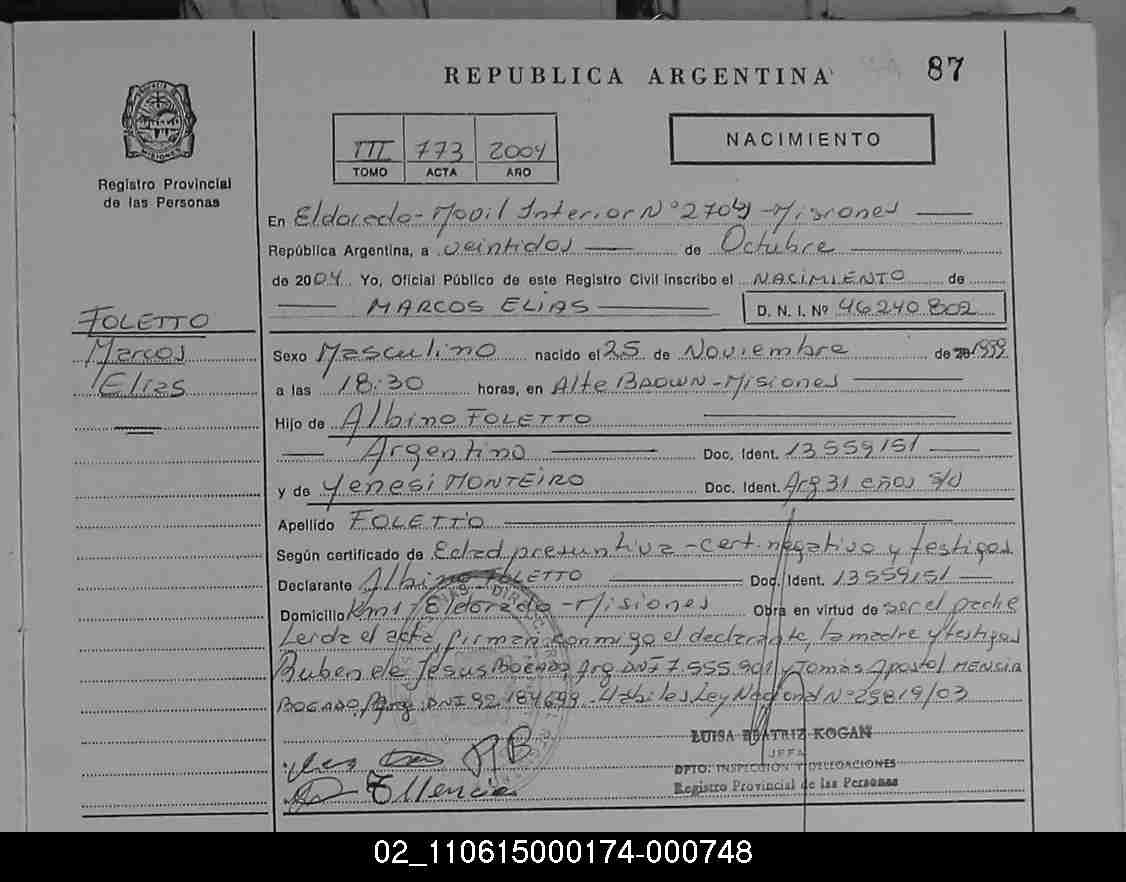 REPUBLICA ARGENTINA
87
PROVINCIA DE
MISIONES
Registro Provincial
de las Personas
III 773 2004
TOMO ACTA AÑO
NACIMIENTO
En Eldorado - Movil Interior Nº 2704 - Misiones
República Argentina, a veintidos de Octubre
de 2004 Yo, Oficial Público de este Registro Civil inscribo el NACIMIENTO de
MARCOS ELIAS D. N. I. Nº 46240802
FOLETTO
Marcos
Elias
Sexo Masculino nacido el 25 de Noviembre de 1999
a las 18:30 horas, en Alte BROWN - Misiones
Hijo de Albino FOLETTO
Argentino Doc. Ident. 13559151
y de Yenesi MONTEIRO Doc. Ident. Arg 31 años s/d
Apellido FOLETTO
Según certificado de Edad presuntiva - cert. negativo y testigos
Declarante Albino FOLETTO Doc. Ident. 13559151
Domicilio Km 1 Eldorado - Misiones Obra en virtud de ser el padre
Leida el acta, firman conmigo el declarante, la madre y testigos
Ruben de Jesus BOGADO, Arg. DNI 7.555.901 y Tomás Apostol MENCIA
BOGADO, DNI 92.184699 - Hábiles Ley Nacional Nº 25819/03
LUISA BEATRIZ KOGAN
JEFA
DPTO. INSPECCION Y DELEGACIONES
Registro Provincial de las Personas
RB
Mencia
02_110615000174-000748